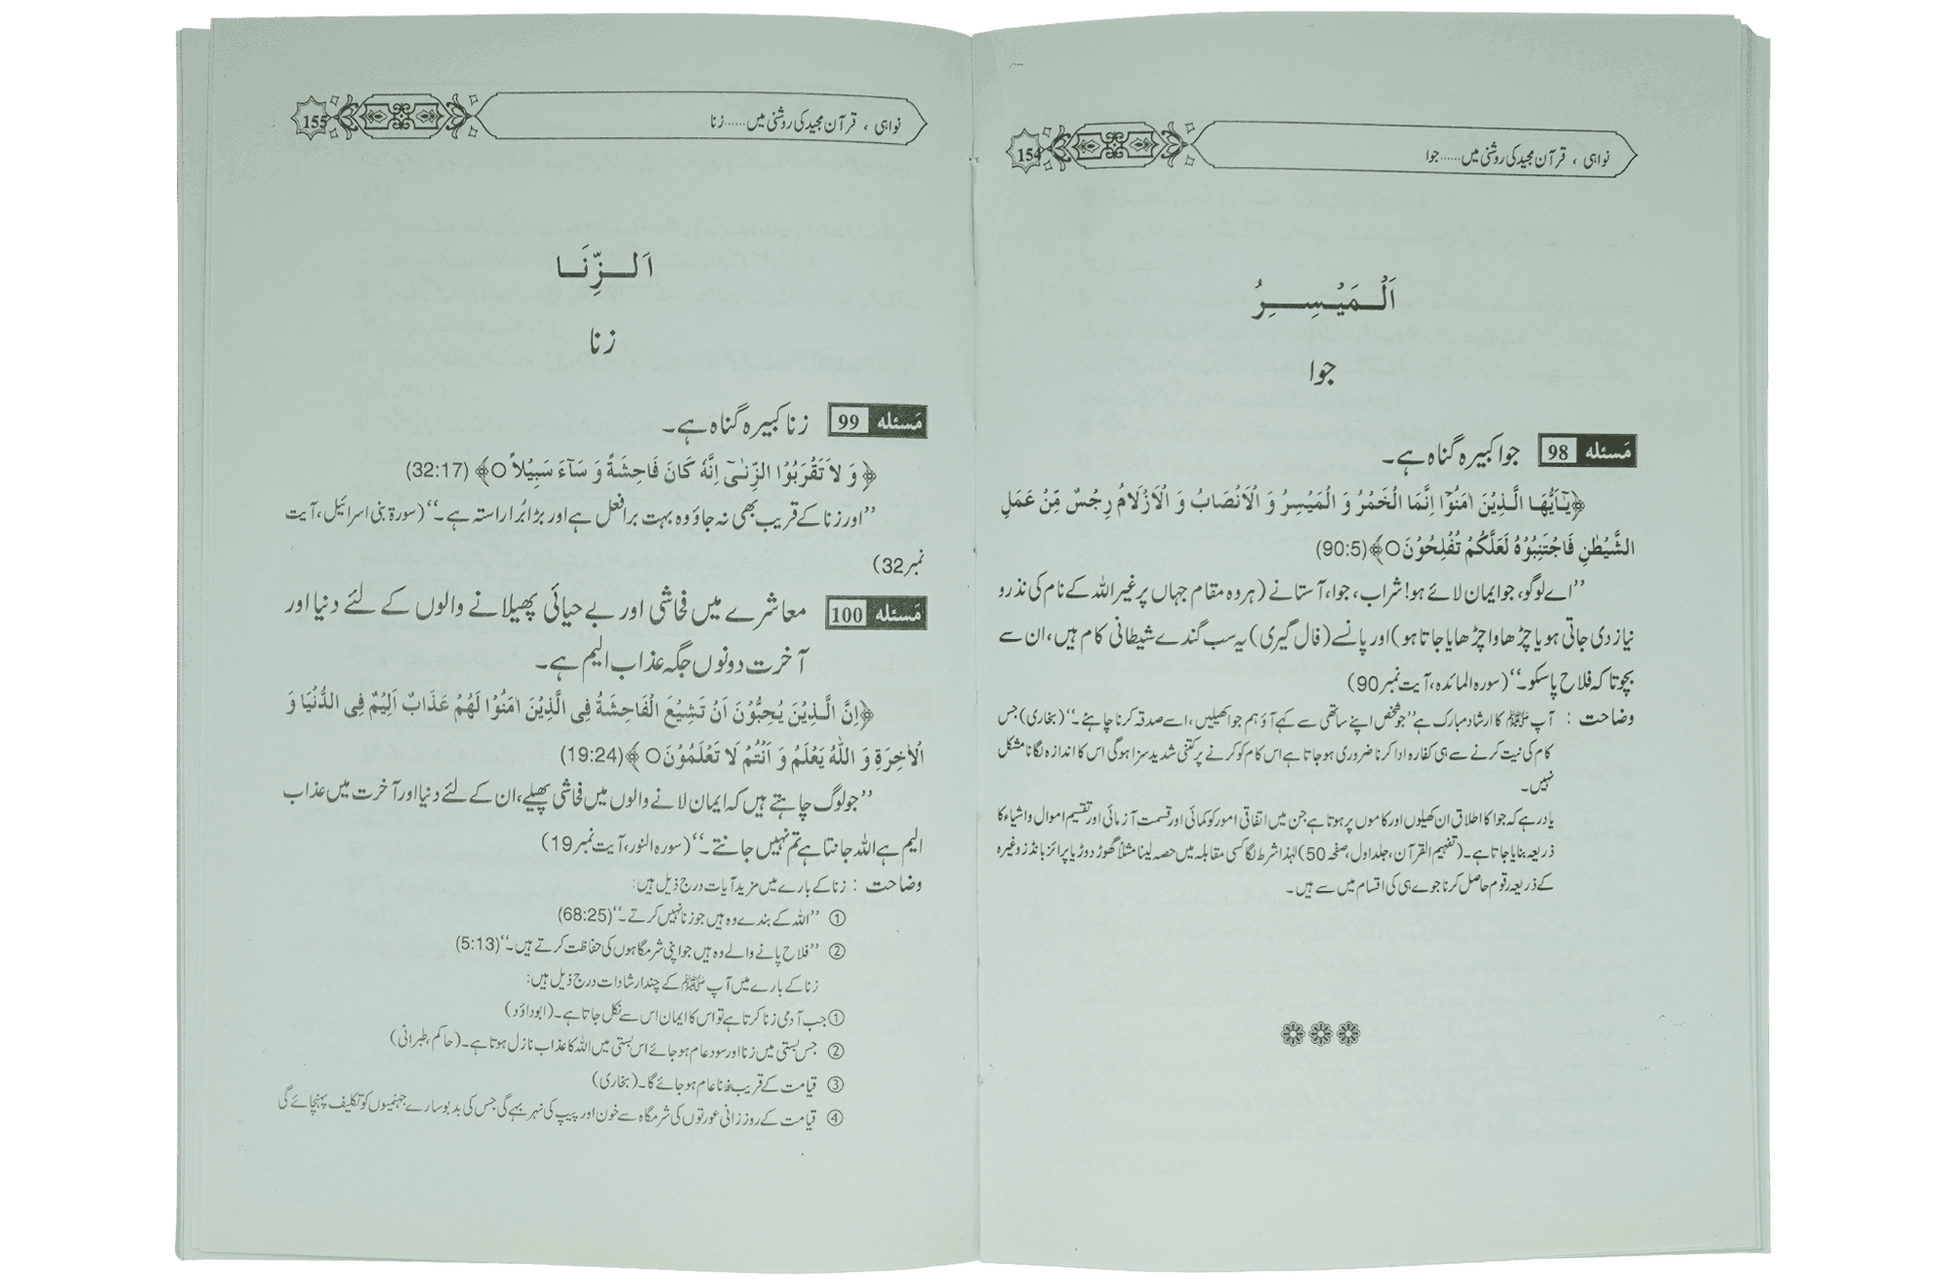 نواہی ، قرآن مجید کی روشنی میں......جوا
154
اَلْـمَيْـسِـــرُ
جوا
مَسئلہ 98 جوا کبیرہ گناہ ہے۔
﴿يٰٓاَيُّهَا الَّذِيْنَ اٰمَنُوْٓا اِنَّمَا الْخَمْرُ وَ الْمَيْسِرُ وَ الْاَنْصَابُ وَ الْاَزْلَامُ رِجْسٌ مِّنْ عَمَلِ
الشَّيْطٰنِ فَاجْتَنِبُوْهُ لَعَلَّكُمْ تُفْلِحُوْنَ○﴾(90:5)
’’اے لوگو، جو ایمان لائے ہو! شراب، جوا، آستانے (ہر وہ مقام جہاں پر غیر اللہ کے نام کی نذر و
نیاز دی جاتی ہو یا چڑھاوا چڑھایا جاتا ہو) اور پانسے (فال گیری) یہ سب گندے شیطانی کام ہیں، ان سے
بچو تاکہ فلاح پاسکو۔‘‘ (سورہ المائدہ، آیت نمبر 90)
وضاحت : آپ ﷺ کا ارشاد مبارک ہے ’’جو شخص اپنے ساتھی سے کہے آؤ ہم جوا کھیلیں، اسے صدقہ کرنا چاہئے۔‘‘ (بخاری) جس
کام کی نیت کرنے سے ہی کفارہ ادا کرنا ضروری ہو جاتا ہے اس کام کو کرنے پر کتنی شدید سزا ہوگی اس کا اندازہ لگانا مشکل
نہیں۔
یاد رہے کہ جوا کا اطلاق ان کھیلوں اور کاموں پر ہوتا ہے جن میں اتفاقی امور کو کمائی اور قسمت آزمائی اور تقسیم اموال و اشیاء کا
ذریعہ بنایا جاتا ہے۔ (تفہیم القرآن، جلد اول، صفحہ 50) لہٰذا شرط لگا کسی مقابلہ میں حصہ لینا مثلاً گھوڑ دوڑ یا پرائز بانڈز وغیرہ
کے ذریعہ رقوم حاصل کرنا جوے ہی کی اقسام میں سے ہیں۔
نواہی ، قرآن مجید کی روشنی میں......زنا
155
اَلـــزِّنَـــا
زنا
مَسئلہ 99 زنا کبیرہ گناہ ہے۔
﴿وَ لاَ تَقْرَبُوْا الزِّنٰىٓ اِنَّهٗ كَانَ فَاحِشَةً وَ سَآءَ سَبِيْلاً○﴾ (32:17)
’’اور زنا کے قریب بھی نہ جاؤ وہ بہت برا فعل ہے اور بڑا بُرا راستہ ہے۔‘‘ (سورۃ بنی اسرائیل، آیت
نمبر 32)
مَسئلہ 100 معاشرے میں فحاشی اور بے حیائی پھیلانے والوں کے لئے دنیا اور
آخرت دونوں جگہ عذاب الیم ہے۔
﴿اِنَّ الَّـذِيْنَ يُحِبُّوْنَ اَنْ تَشِيْعَ الْفَاحِشَةُ فِى الَّذِيْنَ اٰمَنُوْا لَهُمْ عَذَابٌ اَلِيْمٌ فِى الدُّنْيَا وَ
الْاٰخِرَةِ وَ اللّٰهُ يَعْلَمُ وَ اَنْتُمْ لَا تَعْلَمُوْنَ○﴾(19:24)
’’جو لوگ چاہتے ہیں کہ ایمان لانے والوں میں فحاشی پھیلے، ان کے لئے دنیا اور آخرت میں عذاب
الیم ہے اللہ جانتا ہے تم نہیں جانتے۔‘‘ (سورہ النور، آیت نمبر 19)
وضاحت : زنا کے بارے میں مزید آیات درج ذیل ہیں:
① ’’اللہ کے بندے وہ ہیں جو زنا نہیں کرتے۔‘‘ (68:25)
② ’’فلاح پانے والے وہ ہیں جو اپنی شرمگاہوں کی حفاظت کرتے ہیں۔‘‘ (5:13)
زنا کے بارے میں آپ ﷺ کے چند ارشادات درج ذیل ہیں:
① جب آدمی زنا کرتا ہے تو اس کا ایمان اس سے نکل جاتا ہے۔ (ابوداؤد)
② جس بستی میں زنا اور سود عام ہو جائے اس بستی میں اللہ کا عذاب نازل ہوتا ہے۔ (حاکم، طبرانی)
③ قیامت کے قریب زنا عام ہو جائے گا۔ (بخاری)
④ قیامت کے روز زانی عورتوں کی شرمگاہ سے خون اور پیپ کی نہر بہے گی جس کی بدبو سارے جہنمیوں کو تکلیف پہنچائے گی